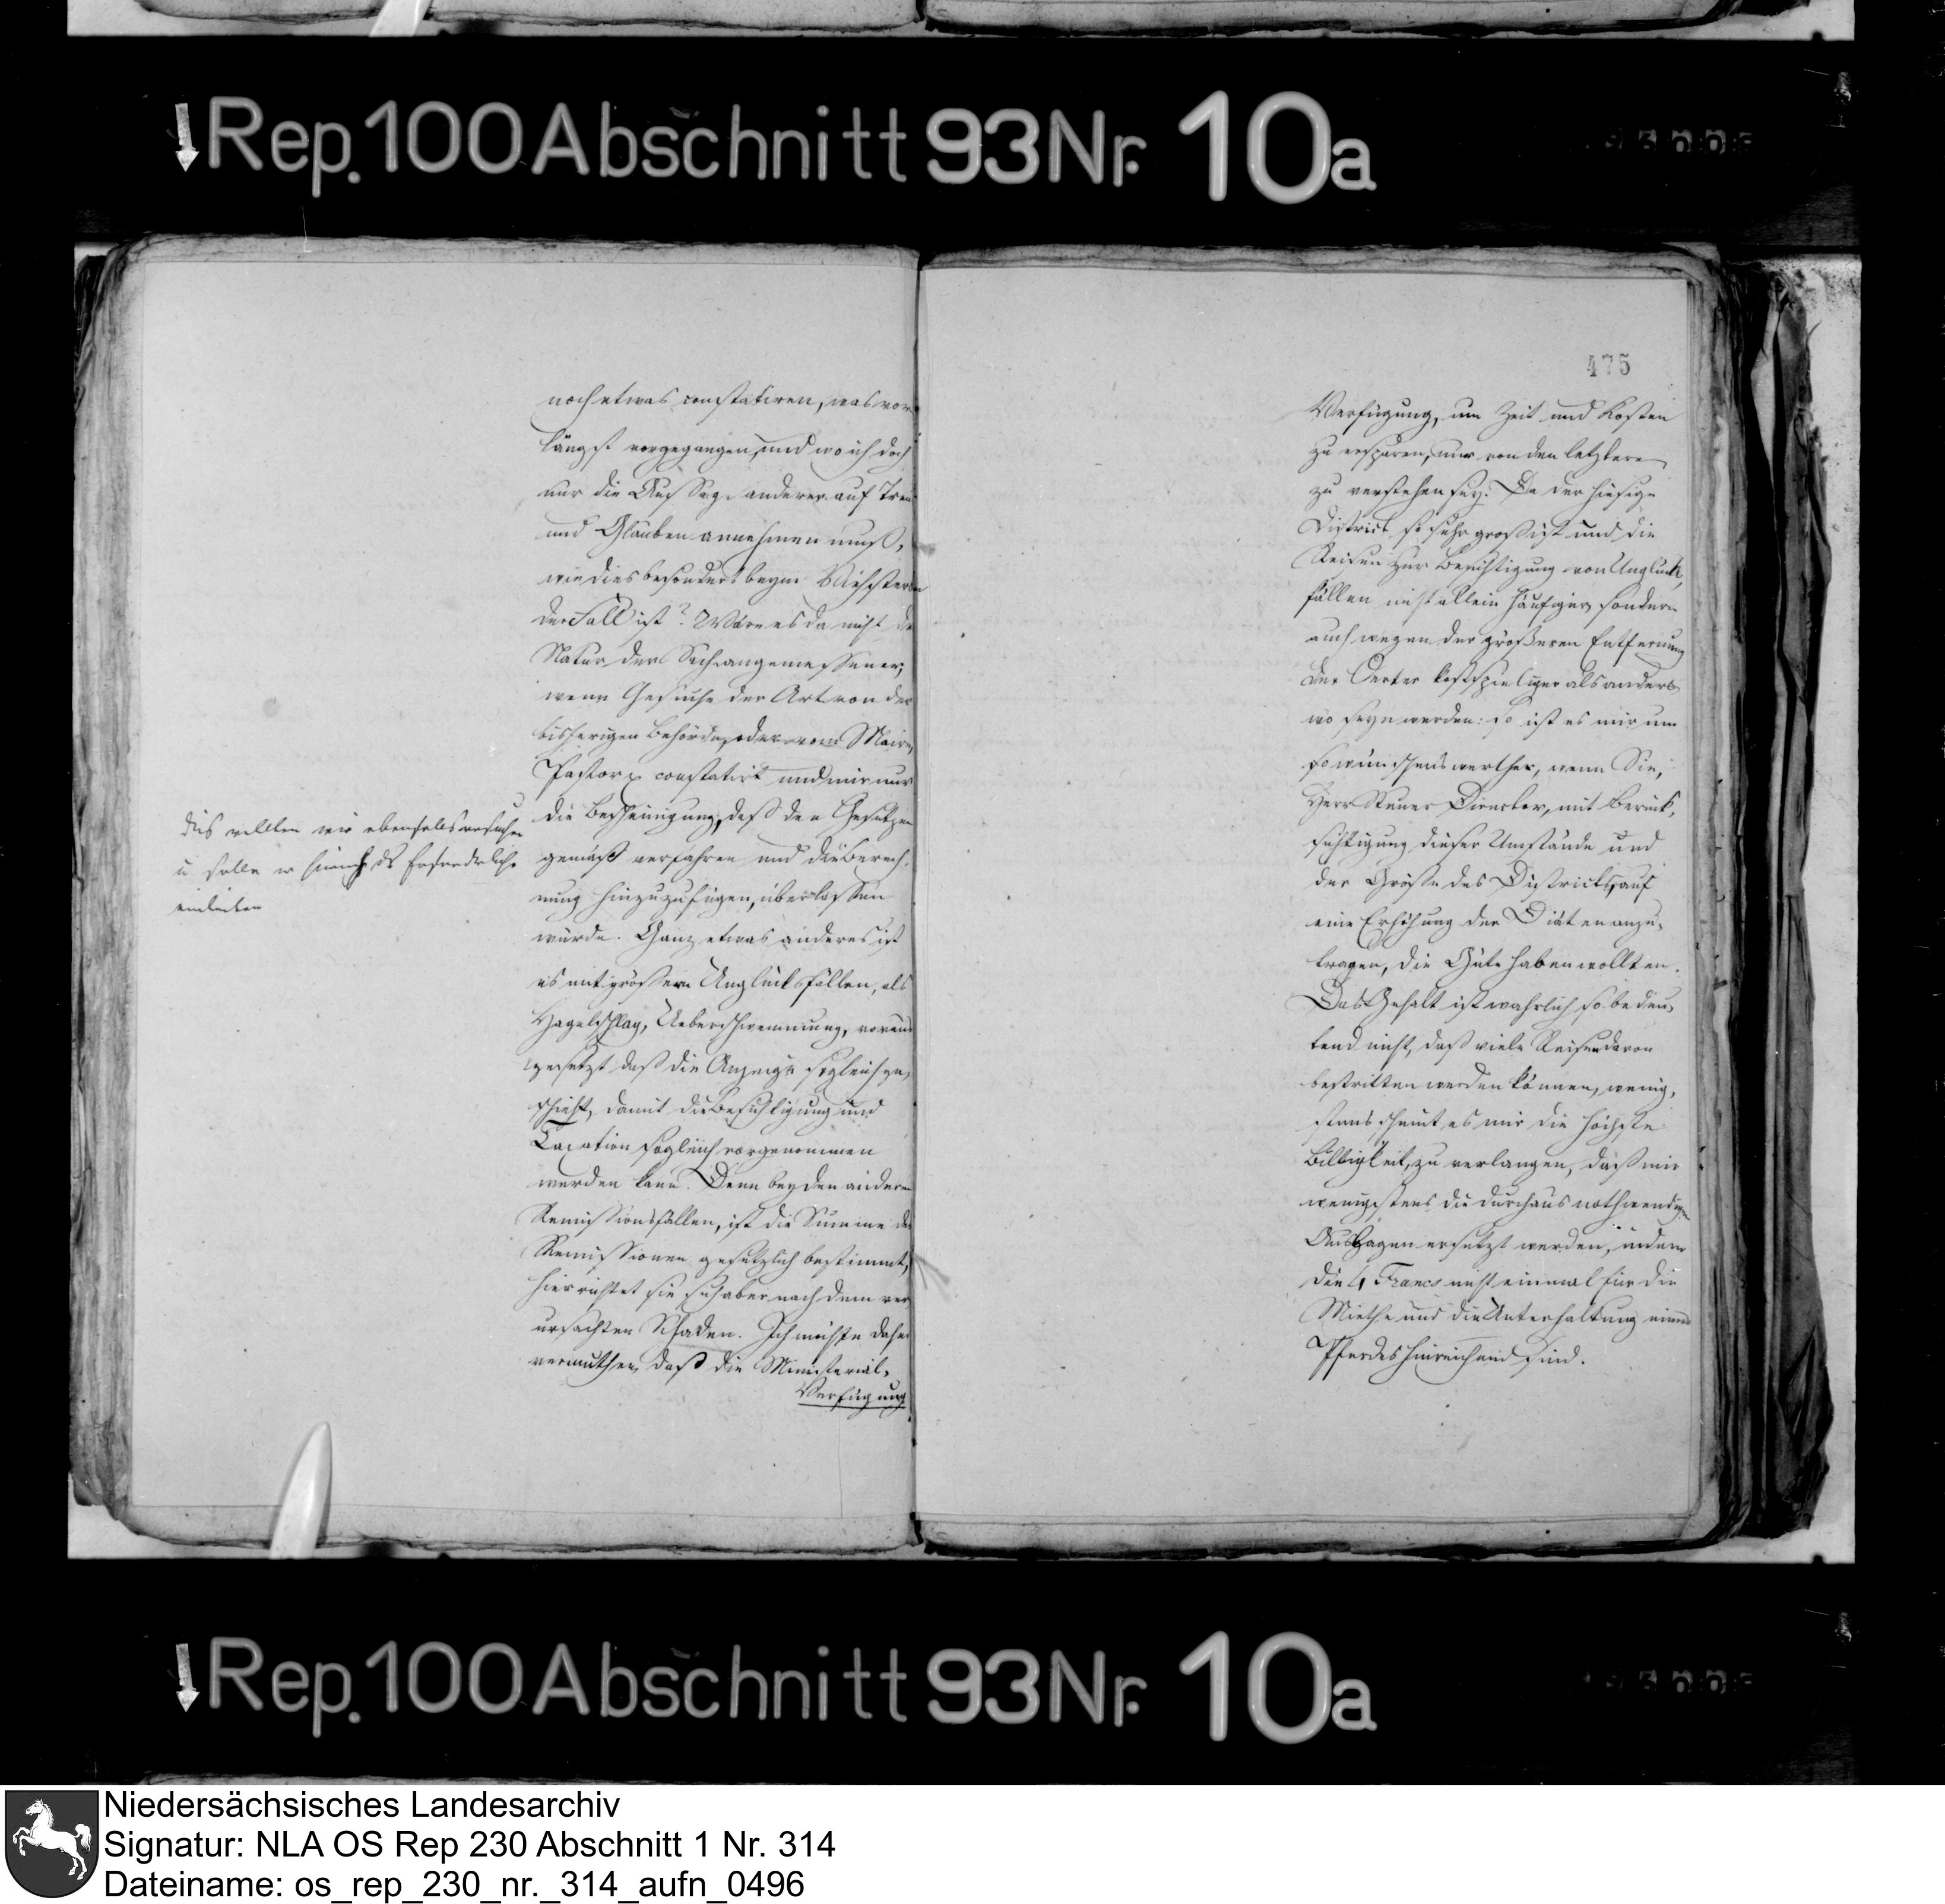 Rep. 100 Abschnitt 93 Nr. 10a
noch etwas constatiren, was vor
längst vorgegangen, und wo ich doch
nur die Aussage anderer auf Treu
und Glauben annehmen muß,
wie dies besonders beym Viehsterben
der Fall ist? Wäre es da nicht der
Natur der Sache angemessener,
wenn Gesuche der Art von der
bisherigen Behörde, oder vom Maire,
Pastor constatirt und mir nur
die Bescheinigung, daß den Gesetzen
gemäß verfahren und die Berech-
nung hinzuzufügen, überlassen
würde. Ganz etwas anderes ist
es mit größern Unglücksfällen, als
Hagelschlag, Ueberschwemmung, voraus
gesetzt daß die Anzeige sogleich ge-
schieht, damit die Besichtigung und
Taxation sogleich vorgenommen
werden kann. Denn bey den anderen
Remissionsfällen, ist die Summe der
Remissionen gesetzlich bestimmt,
hier richtet sie sich aber nach dem ver-
ursachten Schaden. Ich möchte daher
vermuthen, daß die Ministerial-
Verfügung
dies wollten wir ebenfalls
u solle er das Erforderliche
einleiten
475
Verfügung, um Zeit und Kosten
zu ersparen, nur von den letztern
zu verstehen sey. Da der hiesige
District so sehr groß ist und die
Reisen zur Besichtigung von Unglücks-
fällen nicht allein häufiger, sondern
auch wegen der größeren Entfernung
der Oerter kostspieliger als anders-
wo seyn werden: so ist es mir um
so wünschenswerther, wenn Sie,
Herr Steuer Director, mit Berück-
sichtigung dieser Umstände und
der Größe des Districts, auf
eine Erhöhung der Diäten anzu-
tragen, die Güte haben wollten.
Das Gehalt ist wahrlich so bedeu-
tend nicht, daß viele Reisen davon
bestritten werden können, wenig-
stens scheint es mir die höchste
Billigkeit, zu verlangen, daß mir
wenigstens die durchaus nothwendigen
Auslagen ersetzt werden, indem
die 4 Francs nicht einmal für die
Miethe und die Unterhaltung eines
Pferdes hinreichend sind.
Rep. 100 Abschnitt 93 Nr. 10a
Niedersächsisches Landesarchiv
Signatur: NLA OS Rep 230 Abschnitt 1 Nr. 314
Dateiname: os_rep_230_nr._314_aufn_0496